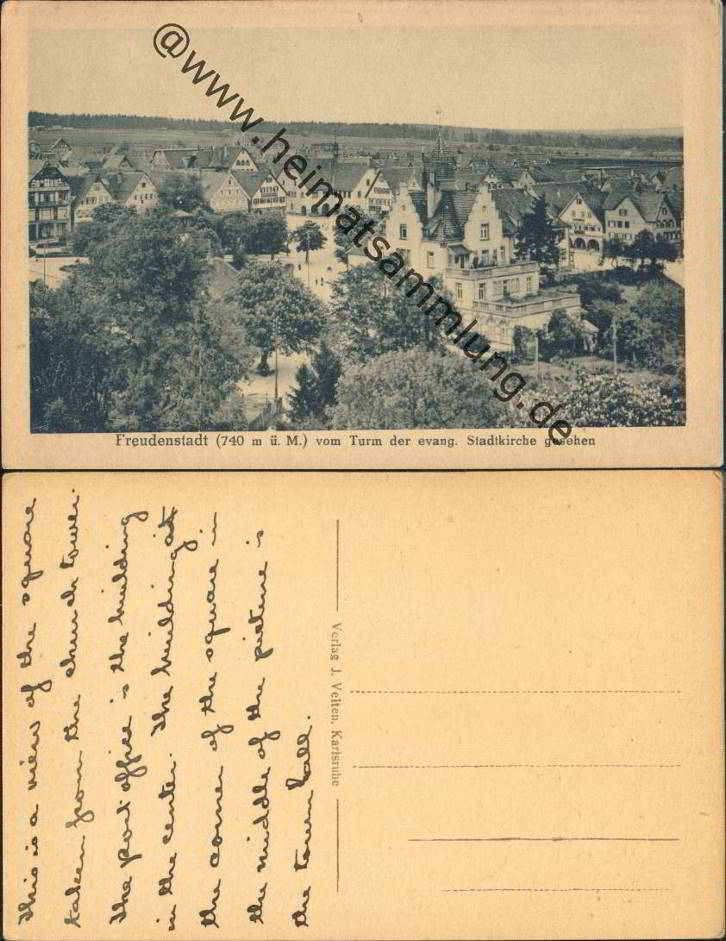 @www.heimatsammlung.de
Freudenstadt (740 m ü. M.) vom Turm der evang. Stadtkirche gesehen
This is a view of the square
taken from the church tower.
The post office is the building
in the center. The building at
the corner of the square in
the middle of the picture is
the town hall.
Verlag J. Velten, Karlsruhe